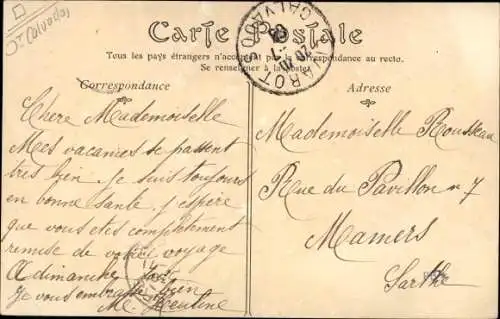 Calvados
Carte Postale
Tous les pays étrangers n'acceptant pas la correspondance au recto.
Se renseigner à la poste.
Correspondance
Adresse
CALVADOS
Chere Mademoiselle
Mes vacances se passent
tres bien je suis toujours
en bonne santé j'espere
que vous etes completement
remise de votre voyage
A dimanche
Je vous embrasse bien
Mademoiselle Rousseau
Rue du Pavillon n 7
Mamers
Sarthe